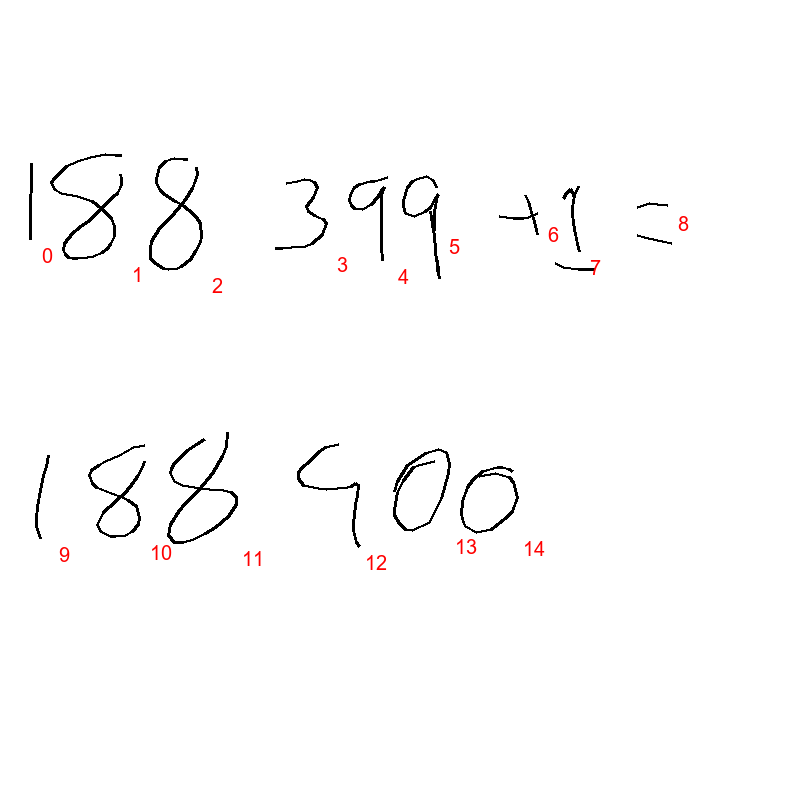 188 399 +1 =
0 1 2 3 4 5 6 7 8
188 400
9 10 11 12 13 14